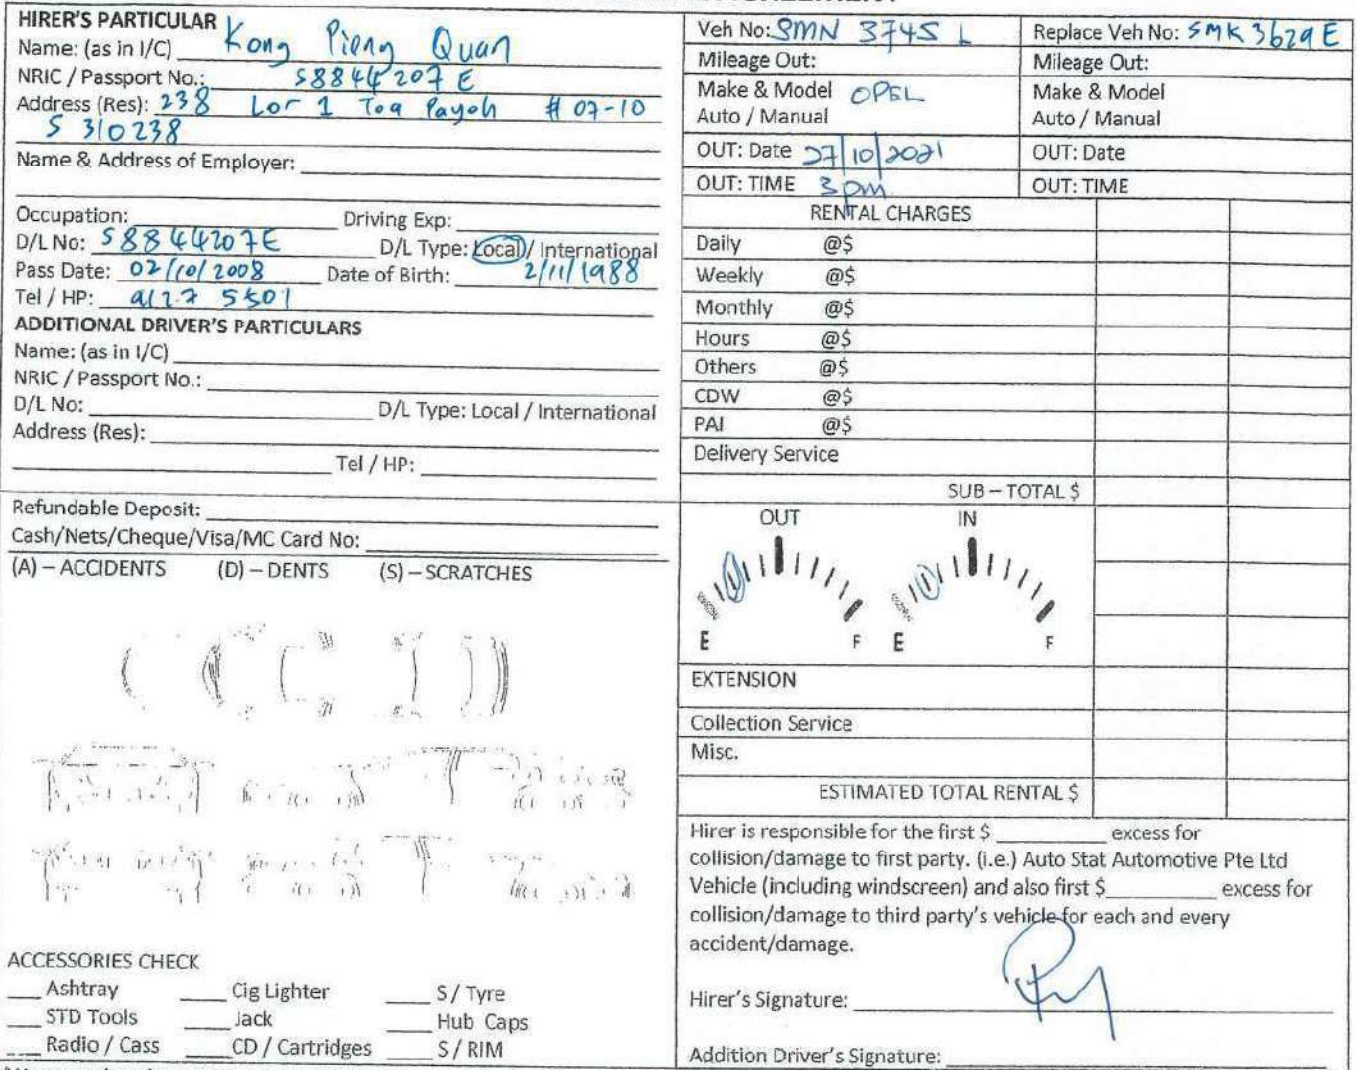 HIRER'S PARTICULAR
Name: (as in I/C) Kong Pieng Quan
NRIC / Passport No.: S8844207E
Address (Res): 238 Lor 1 Toa Payoh #07-10
S 310238
Name & Address of Employer:
Occupation: Driving Exp:
D/L No: S8844207E D/L Type: Local / International
Pass Date: 02/10/2008 Date of Birth: 2/11/1988
Tel / HP: 9127 5501
ADDITIONAL DRIVER'S PARTICULARS
Name: (as in I/C)
NRIC / Passport No.:
D/L No: D/L Type: Local / International
Address (Res):
Tel / HP:
Refundable Deposit:
Cash/Nets/Cheque/Visa/MC Card No:
(A) – ACCIDENTS (D) – DENTS (S) – SCRATCHES
ACCESSORIES CHECK
Ashtray Cig Lighter S / Tyre
STD Tools Jack Hub Caps
Radio / Cass CD / Cartridges S / RIM
Veh No: SMN 3745 L Replace Veh No: SMK 3629 E
Mileage Out: Mileage Out:
Make & Model OPEL Make & Model
Auto / Manual Auto / Manual
OUT: Date 27/10/2021 OUT: Date
OUT: TIME 3 pm OUT: TIME
RENTAL CHARGES
Daily @$
Weekly @$
Monthly @$
Hours @$
Others @$
CDW @$
PAI @$
Delivery Service
SUB – TOTAL $
OUT IN
E F E F
EXTENSION
Collection Service
Misc.
ESTIMATED TOTAL RENTAL $
Hirer is responsible for the first $ excess for
collision/damage to first party. (i.e.) Auto Stat Automotive Pte Ltd
Vehicle (including windscreen) and also first $ excess for
collision/damage to third party's vehicle for each and every
accident/damage.
Hirer's Signature:
Addition Driver's Signature: